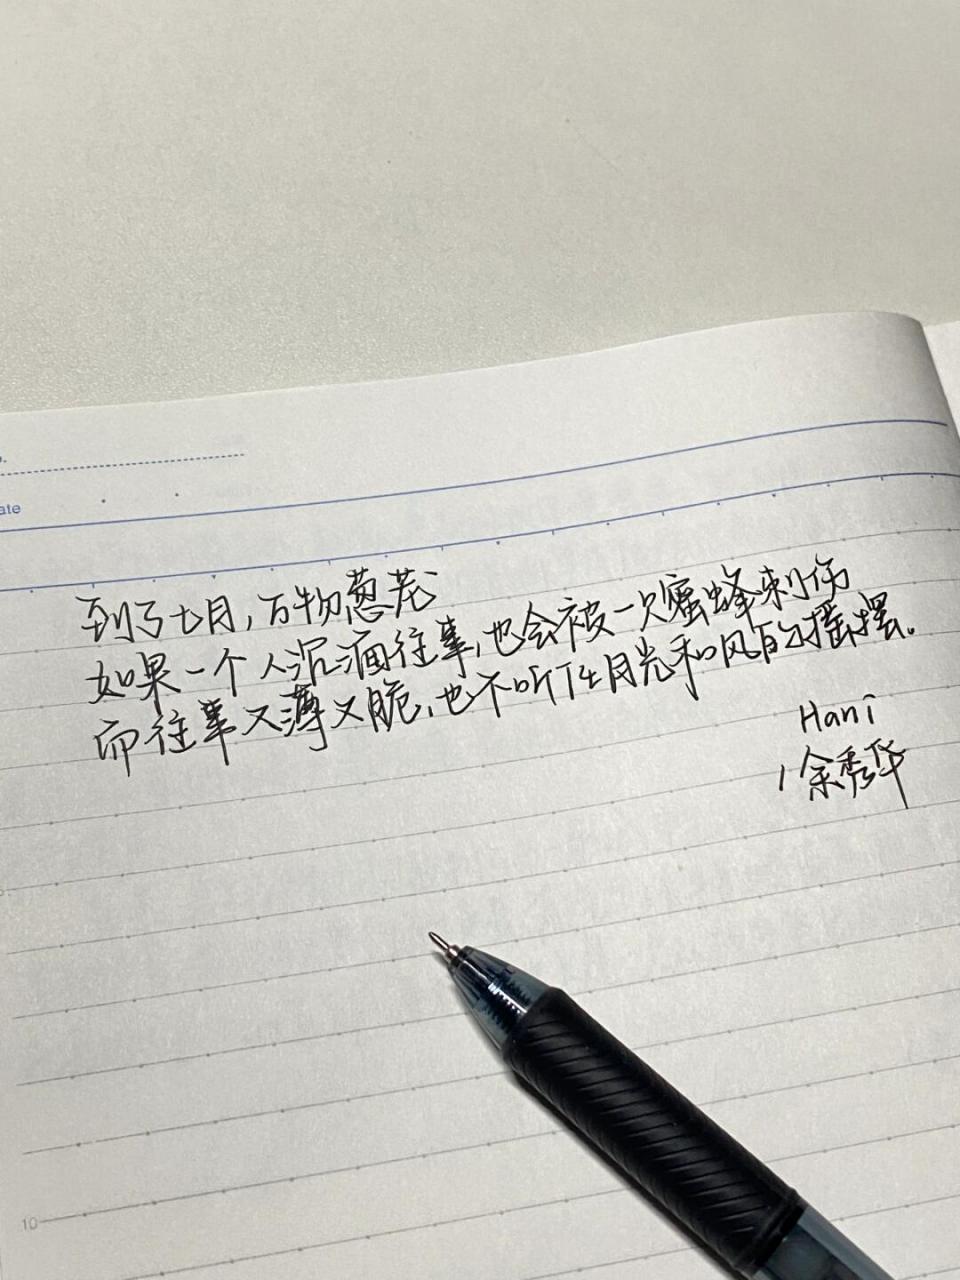 .
ate
到了七月，万物葱茏
如果一个人沉湎往事，也会被一次蜜蜂刺伤
而往事又薄又脆，也不听任月光和风的摇摆。
Hani
余秀华
10